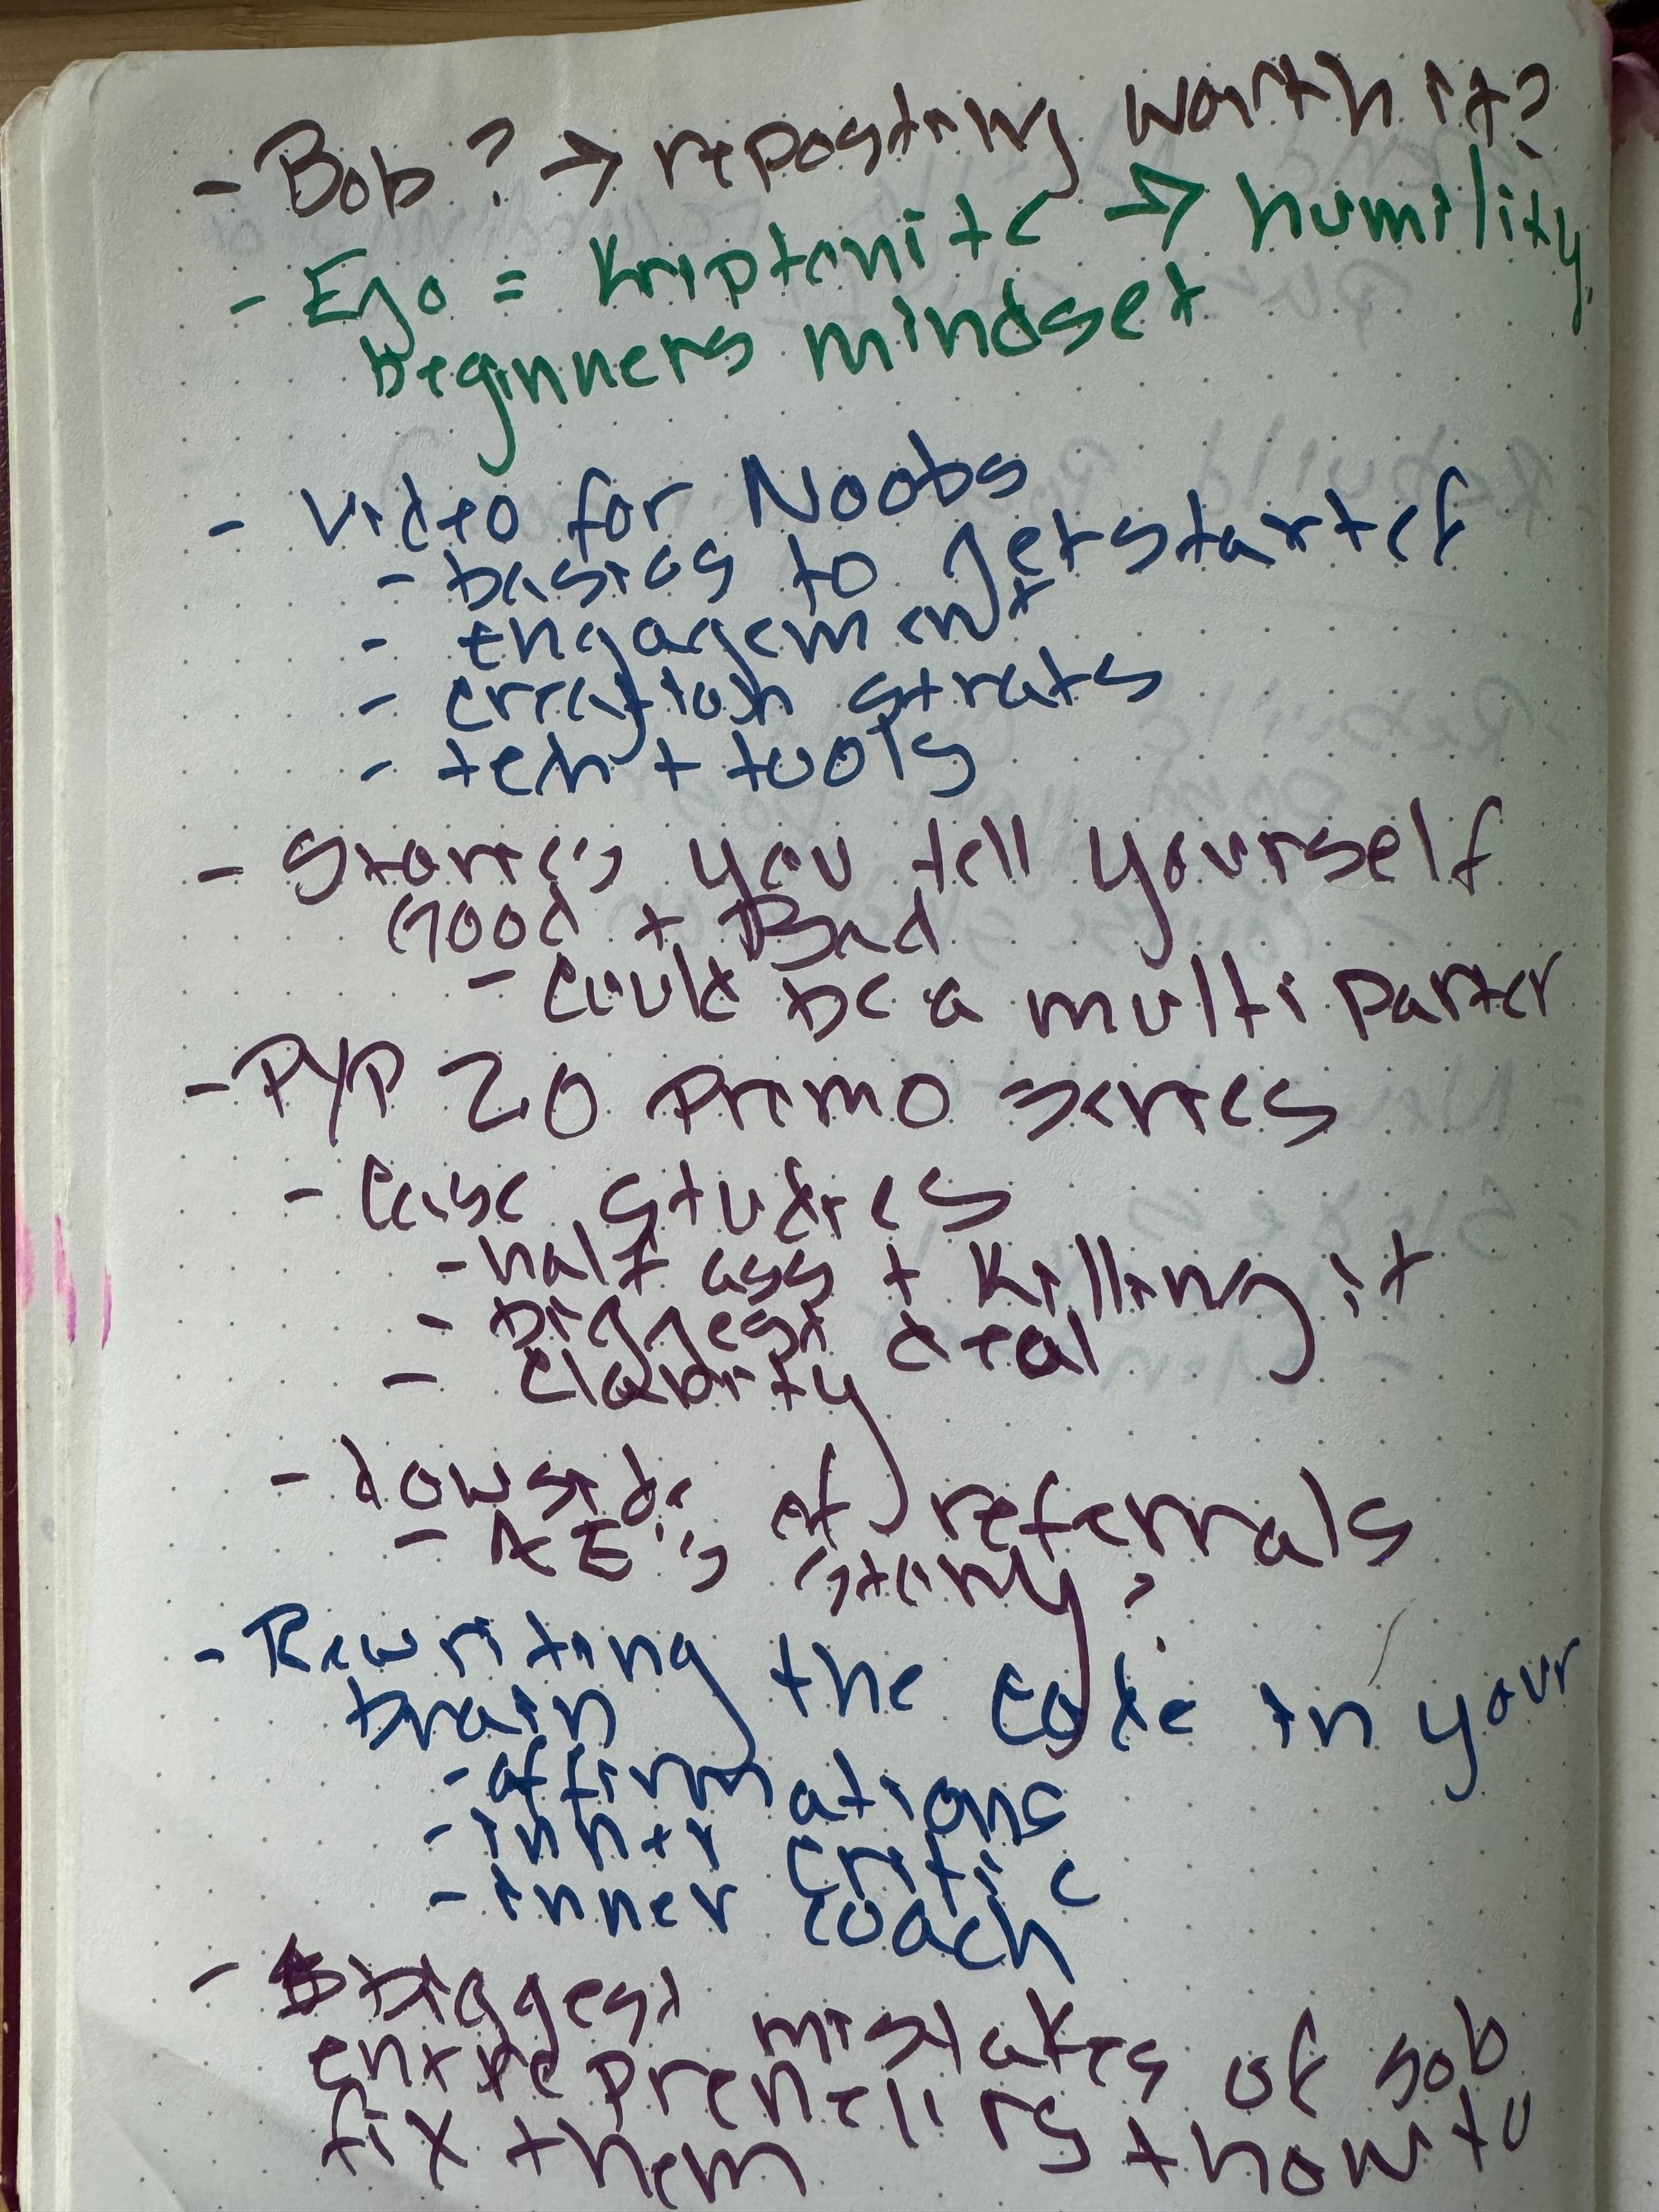 - Bob? → reposting worth it?
- Ego = Kriptonite → humility,
beginners mindset
- Video for Noobs
- basics to get started
- engagement
- creation strats
- tech + tools
- Stories you tell yourself
Good + Bad
- Could be a multi parter
- PYP 2.0 Primo series
- Case studies
- half ass + killing it
- biggest deal
- Clarity
- downside of referrals
- AE's story?
- Rewriting the code in your
brain
- affirmations
- inner critic
- inner coach
- biggest mistakes of sob
entrepreneurs + how to
fix them